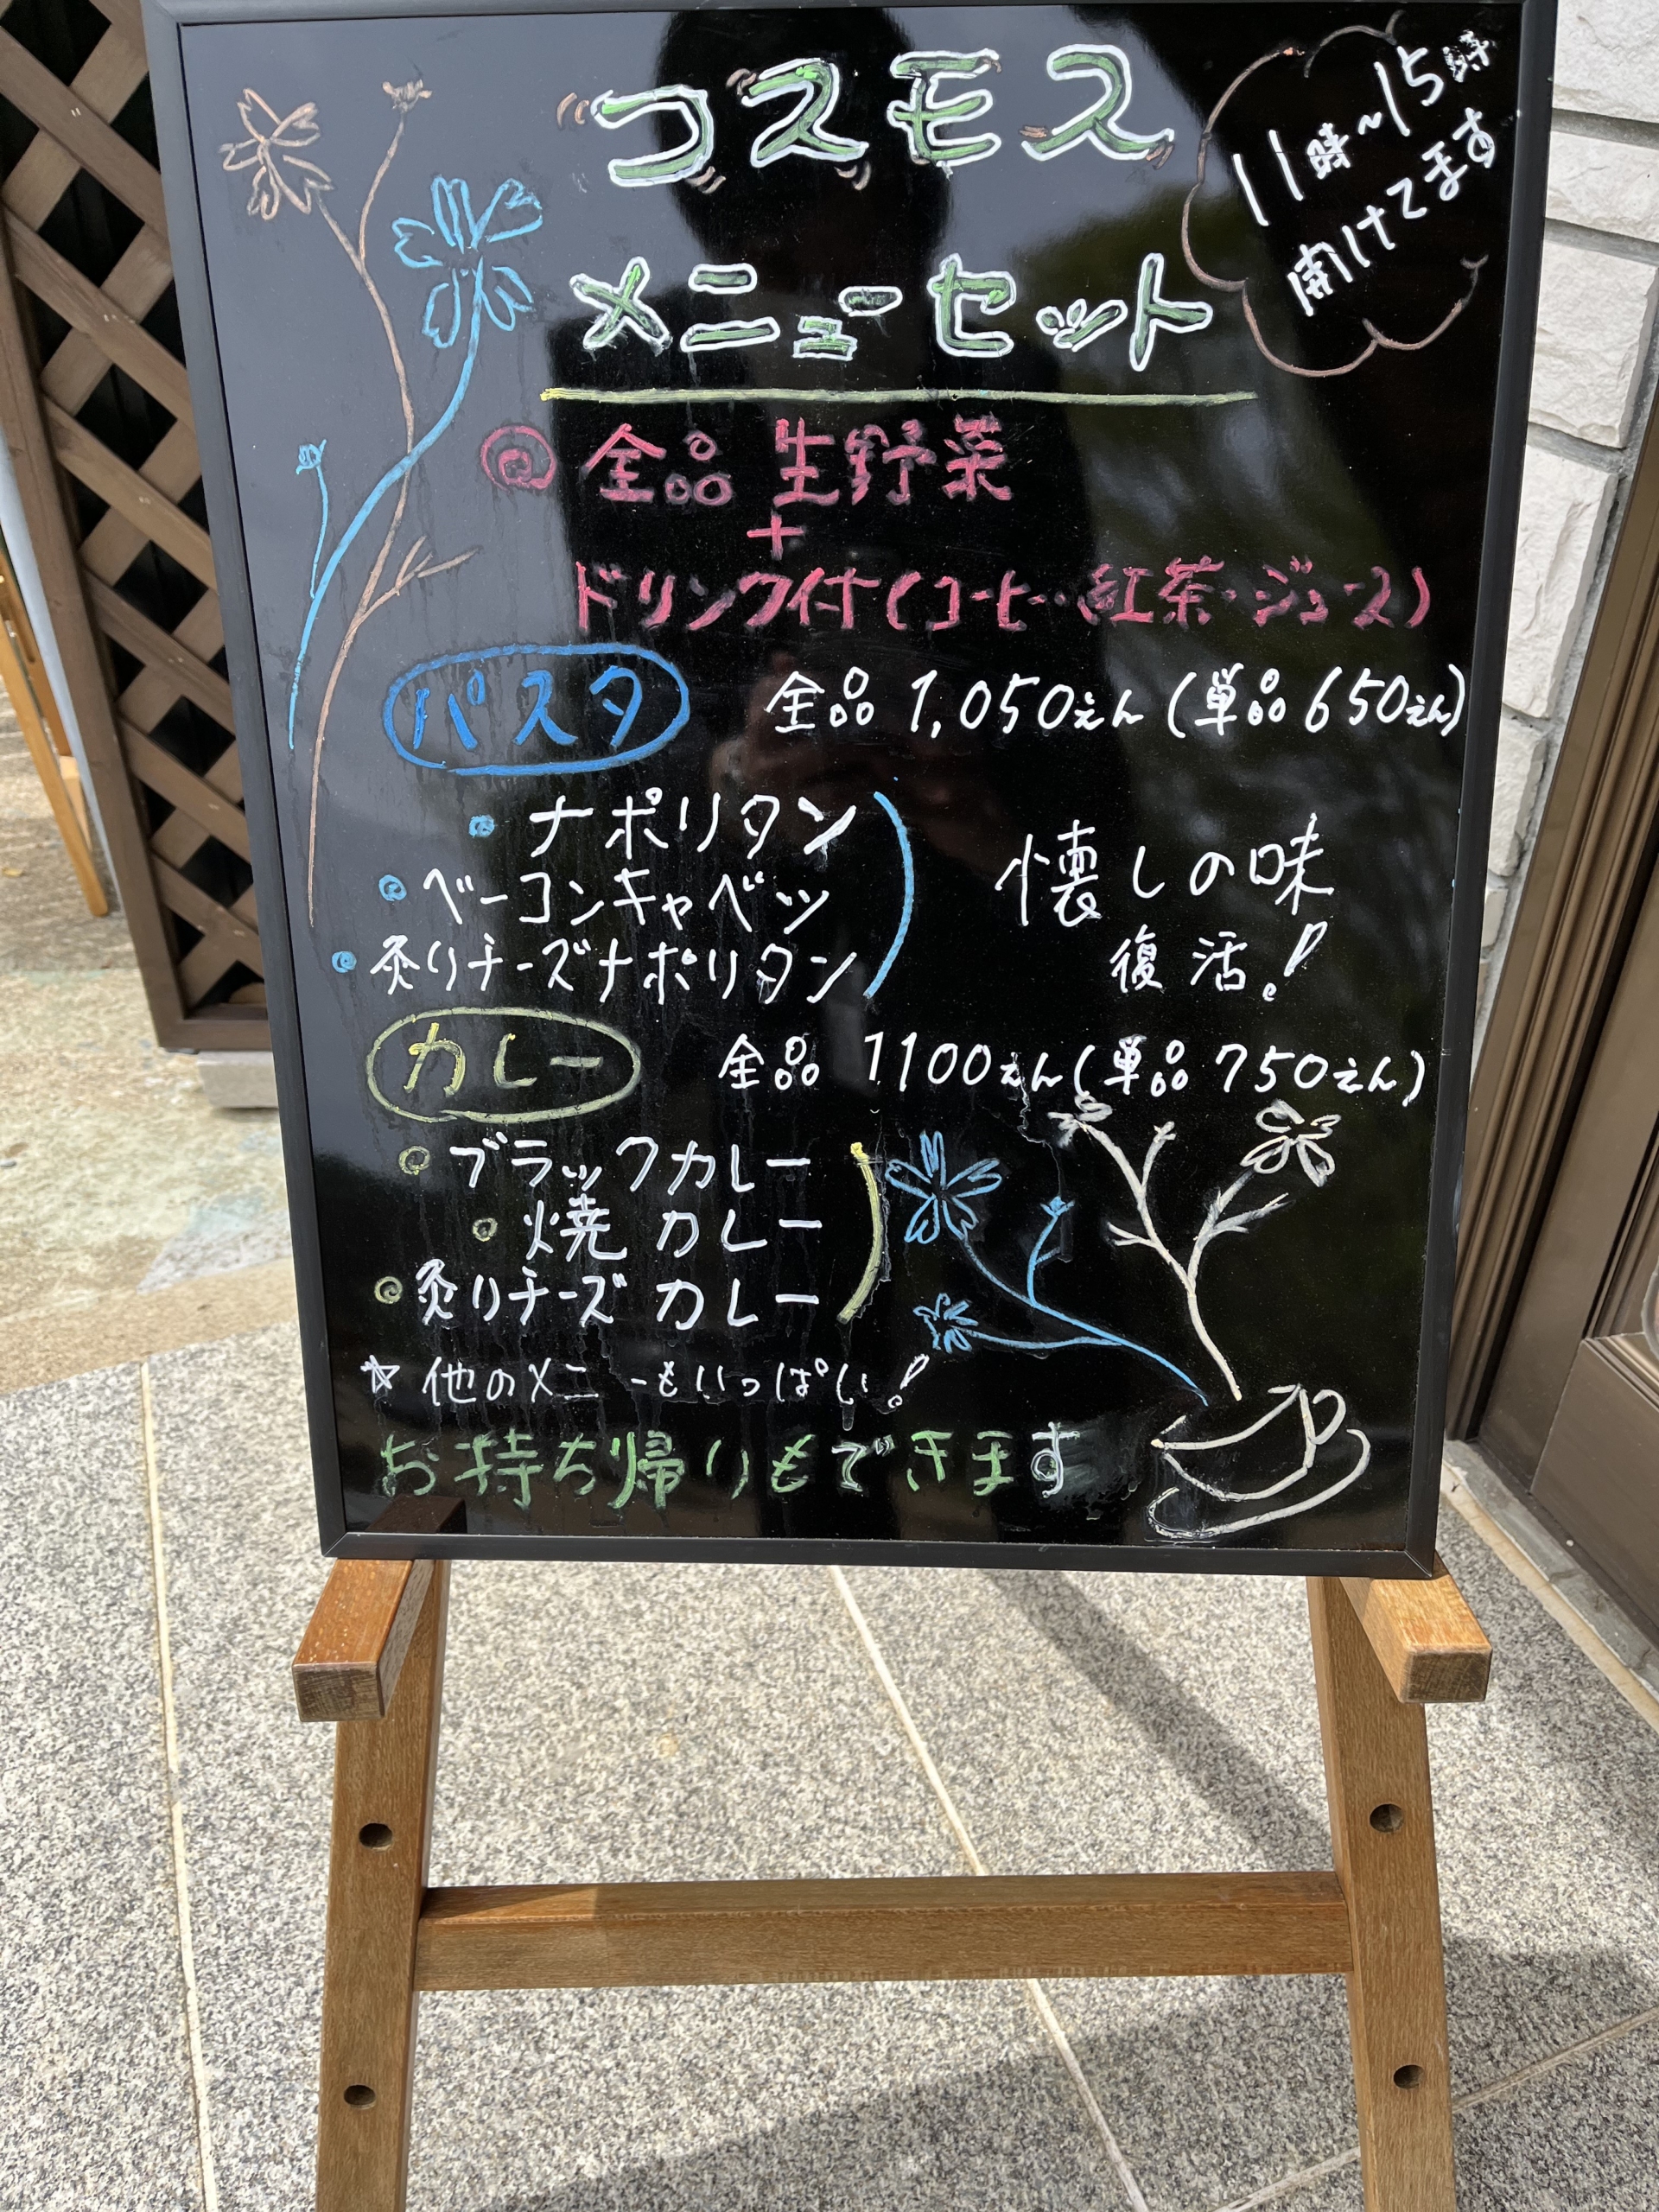 コスモス
11時~15時
開けてます
メニューセット
@ 全品 生野菜
+
ドリンク付(コーヒー・紅茶・ジュース)
パスタ 全品 1,050えん (単品 650えん)
ナポリタン
ベーコンキャベツ
炙りチーズナポリタン
懐しの味
復活!
カレー 全品 1100えん (単品 750えん)
ブラックカレー
焼カレー
炙りチーズカレー
☆ 他のメニーもいっぱい!
お持ち帰りもできます